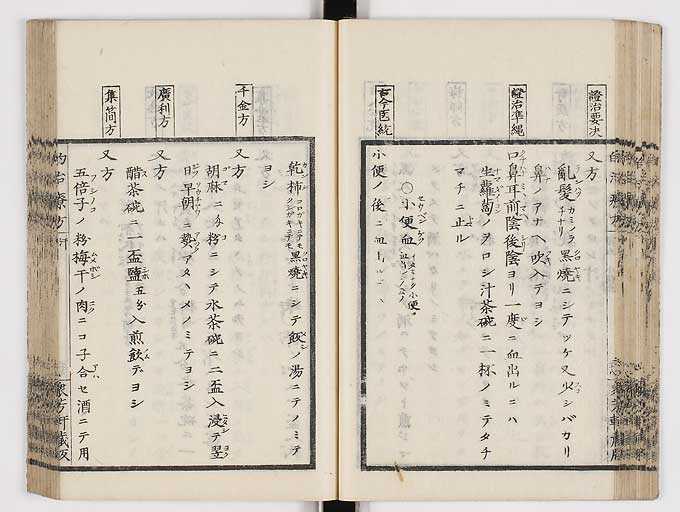 證治要决
又方
亂髮カミノラチナリ黒燒ニシテツケ又少シバカリ
鼻ノアナヘ吹入テヨシ
證治準縄
口鼻耳前陰後陰ヨリ一度ニ血出ルニハ
生蘿蔔ノヲロシ汁茶碗ニ一杯ノミテタチ
マチニ止ル
古今医統
○小便血
小便ノ後ニ血
乾柿コロガキニテモツンガキニテモ黒燒ニシテ飯ノ湯ニテノミテ
ヨシ
千金方
又方
胡麻ニ
粉ニシテ水茶碗ニ二盃入浸テ翌
日早朝ニ
アタヽメノミテヨシ
廣利方
又方
醋茶碗ニ一盃鹽五分入煎飲テヨシ
集简方
又方
五倍子ノ粉梅干ノ肉ニコ子合セ酒ニテ用
的治療方